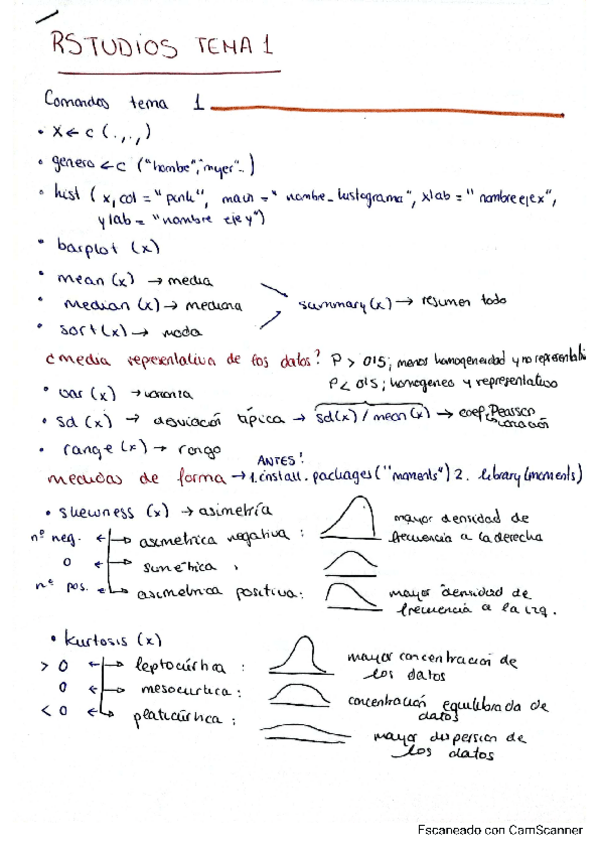 RSTUDIOS TEMA 1
Comandos tema 1
• X ← c (.,.,)
• genero ← c ("hombe", "mujer"..)
• hist ( x, col = "pink", main = " nombre_histograma", xlab = " nombre eje x",
ylab = "nombre eje y")
• barplot (x)
• mean (x) → media
• median (x) → mediana
summary (x) → resumen todo
• sort (x) → moda
¿media representativa de los datos? P > 0'5; menos homogeneidad y no representati
P < 0'5; homogeneo y representativo
• var (x) → varianza
• sd (x) → desviación típica → sd(x) / mean(x) → coef. Pearson
variación
• range (x) → rango
ANTES!
medidas de forma → 1. install. packages ("moments") 2. library (moments)
• skewness (x) → asimetría
nº neg. ← → asimetrica negativa : mayor densidad de
frecuencia a la derecha
0 ← → simétrica :
nº pos. ← → asimetrica positiva: mayor densidad de
frecuencia a la izq.
• kurtosis (x)
> 0 ← → leptocúrtica : mayor concentración de
los datos
0 ← → mesocurtica : concentración equilibrada de
datos
< 0 ← → platicúrtica : mayor dispersion de
los datos
Escaneado con CamScanner